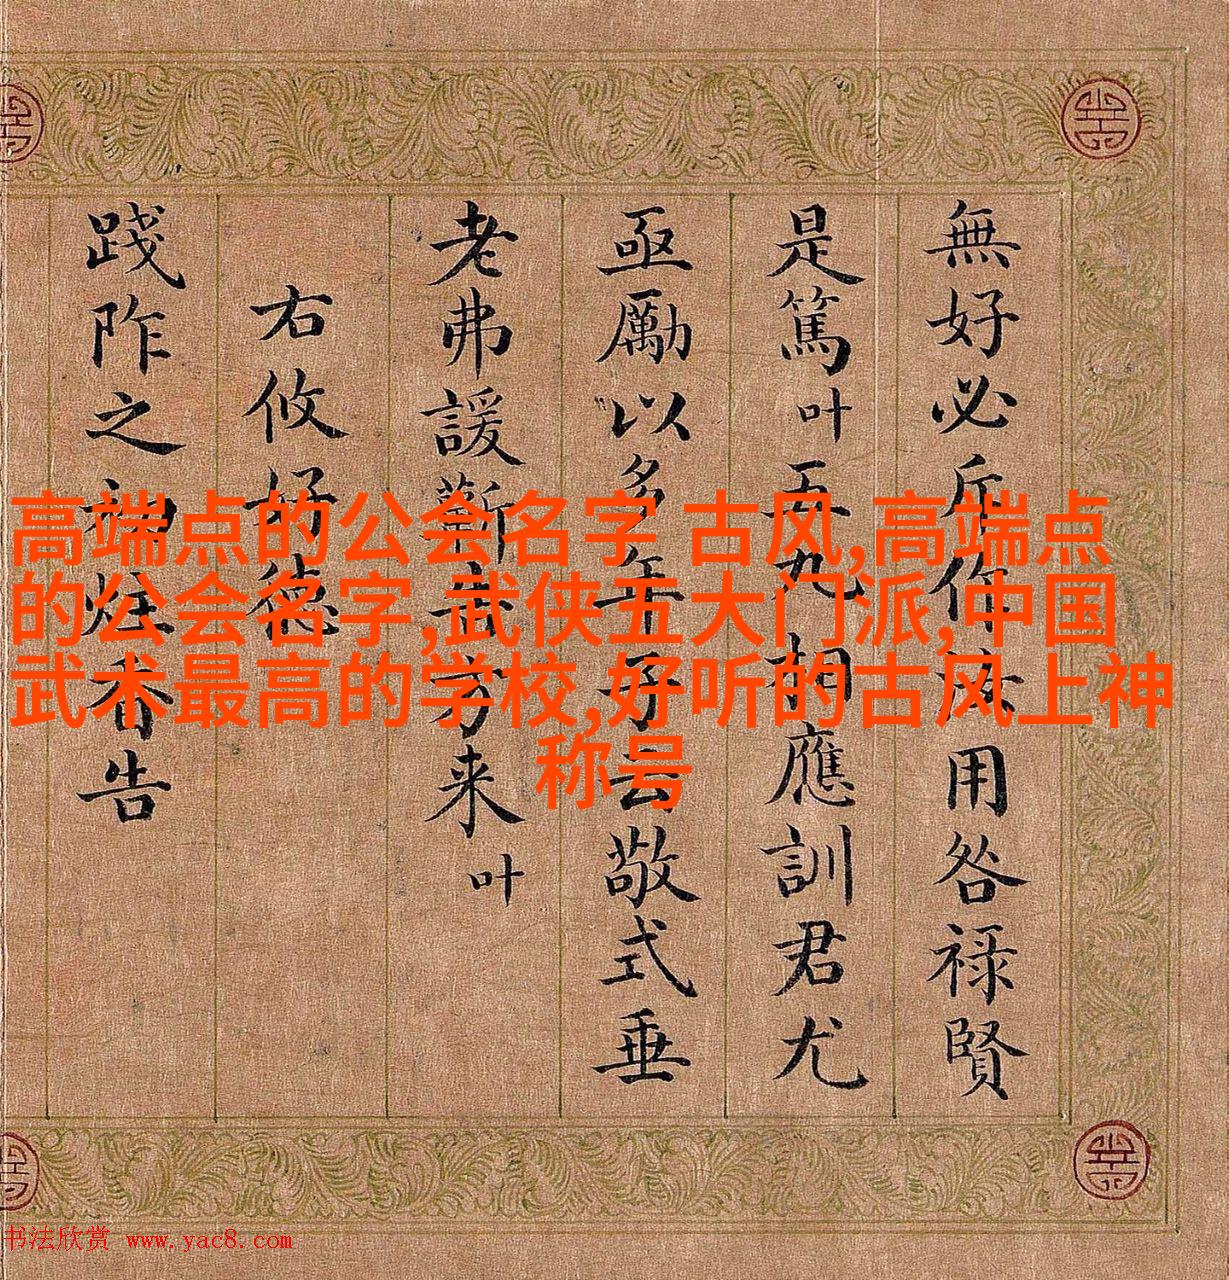 無好必用咎祿賢
是篤叶五九相應訓君尤
亟勵以多年敬式垂
老弗諼蘄来叶
右攸好德
踐阼之初炷香告
高端点的公会名字 古风,高端点
的公会名字,武侠五大门派,中国
武术最高的学校,好听的古风上神
称号
书法欣赏 www.yac8.com